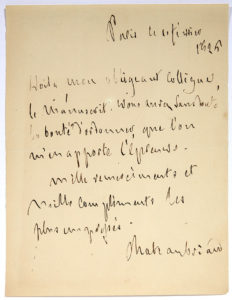 Paris le 1 février
1825
Voilà mon obligeant collègue,
le manuscrit. Vous aurez sans doute
la bonté d'ordonner que l'on
m'en apporte l'épreuve.
mille remerciements et
mille compliments les
plus empressés.
Chateaubriand